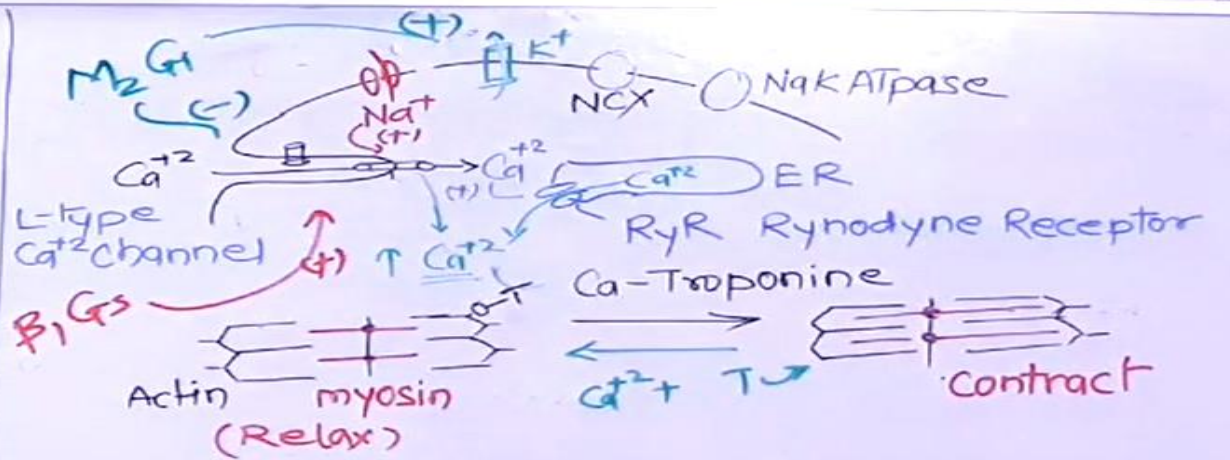 M2 Gi
(+)
K+
(-)
Na+
(+)
NCX
NaK ATpase
Ca+2
Ca+2
(+)
Ca+2
ER
L-type
Ca+2 channel
RyR Rynodyne Receptor
(+)
↑ Ca+2
β1 Gs
T
Ca-Troponine
Ca+2 + T
Actin
myosin
Contract
(Relax)